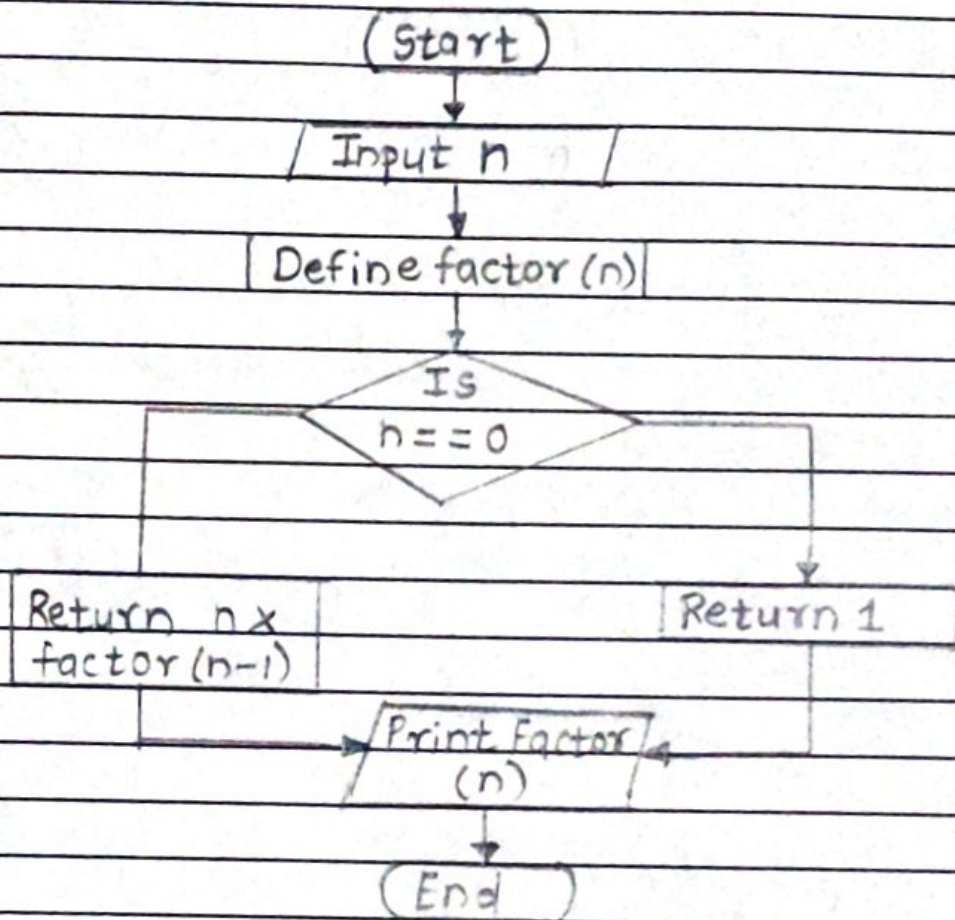 Start
Input n
Define factor (n)
Is
n == 0
Return n x
factor (n-1)
Return 1
Print Factor
(n)
End